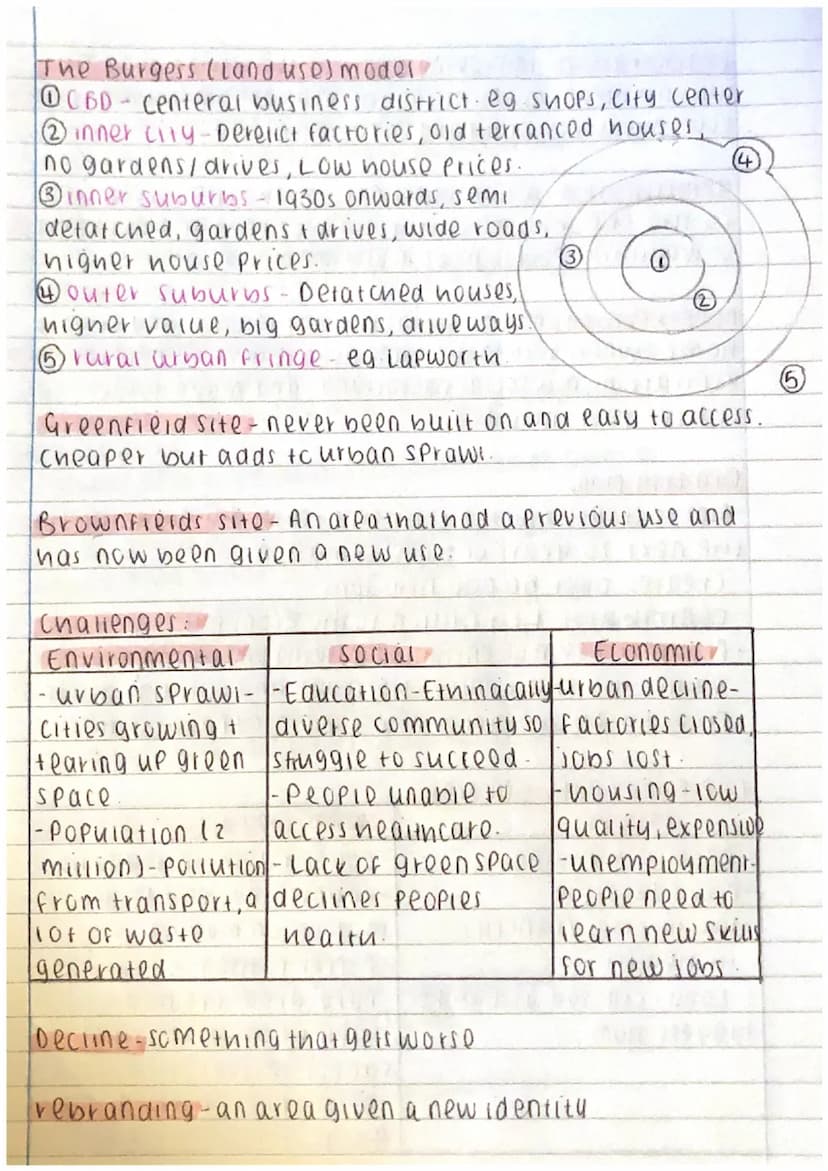 The Burgess (land use) model
① CBD - centeral business district. eg shops, city center
② inner city - Derelict factories, old terranced houses,
no gardens/drives, Low house prices.
③ inner suburbs - 1930s onwards, semi
detatched, gardens + drives, wide roads,
higher house prices.
④ outer suburbs - Detatched houses,
higher value, big gardens, driveways.
⑤ rural urban fringe - eg Lapworth
①
②
③
④
⑤
Greenfield site - never been built on and easy to access.
cheaper but adds to urban sprawl.
Brownfields site - An area that had a previous use and
has now been given a new use.
Challenges:
Environmental
- urban sprawl -
cities growing +
tearing up green
space
- Population (2
million) - pollution
from transport, a
lot of waste
generated
social
- Education - Ethinacally
diverse community so
struggle to succeed.
- People unable to
access healthcare.
- Lack of green space
declines peoples
health.
Economic
- urban decline -
factories closed,
jobs lost.
- housing - low
quality, expensive
- unemployment -
people need to
learn new skills
for new jobs.
Decline - something that gets worse
rebranding - an area given a new identity